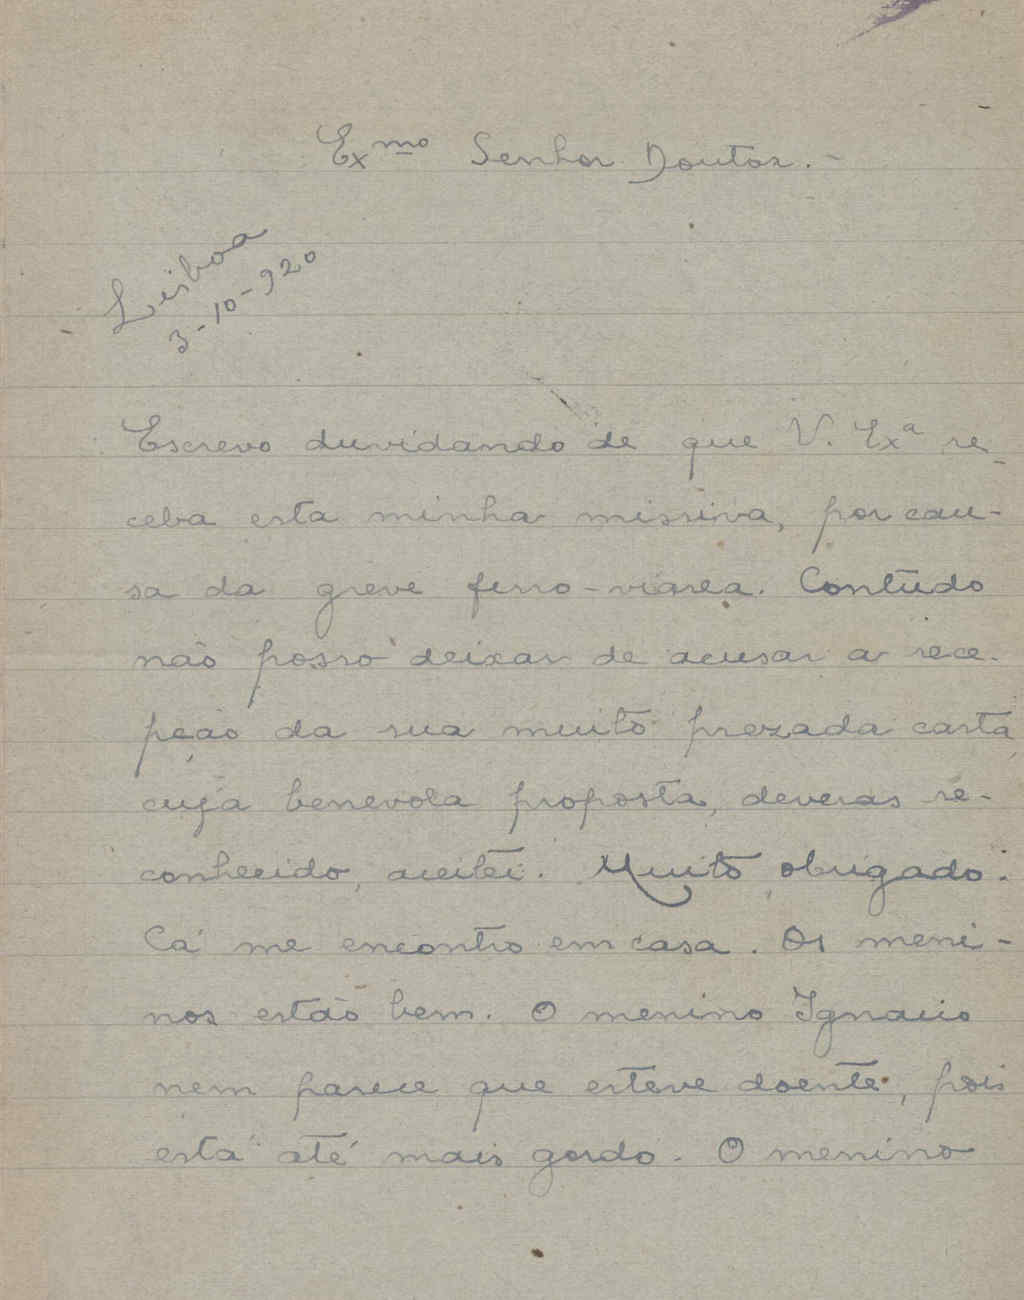 Ex.mo Senhor Doutor.-
Lisboa
3-10-920
Escrevo duvidando de que V. Exª re-
ceba esta minha missiva, por cau-
sa da greve ferro-viarea. Contúdo
não posso deixar de acusar a rece-
pção da sua muito prezada carta,
cuja benevola proposta, deveras re-
conhecido, aceitei. Muito obrigado.
Cá me encontro em casa. Os meni-
nos estão bem. O menino Ignacio
nem parece que esteve doente, pois
está até mais gordo. O menino